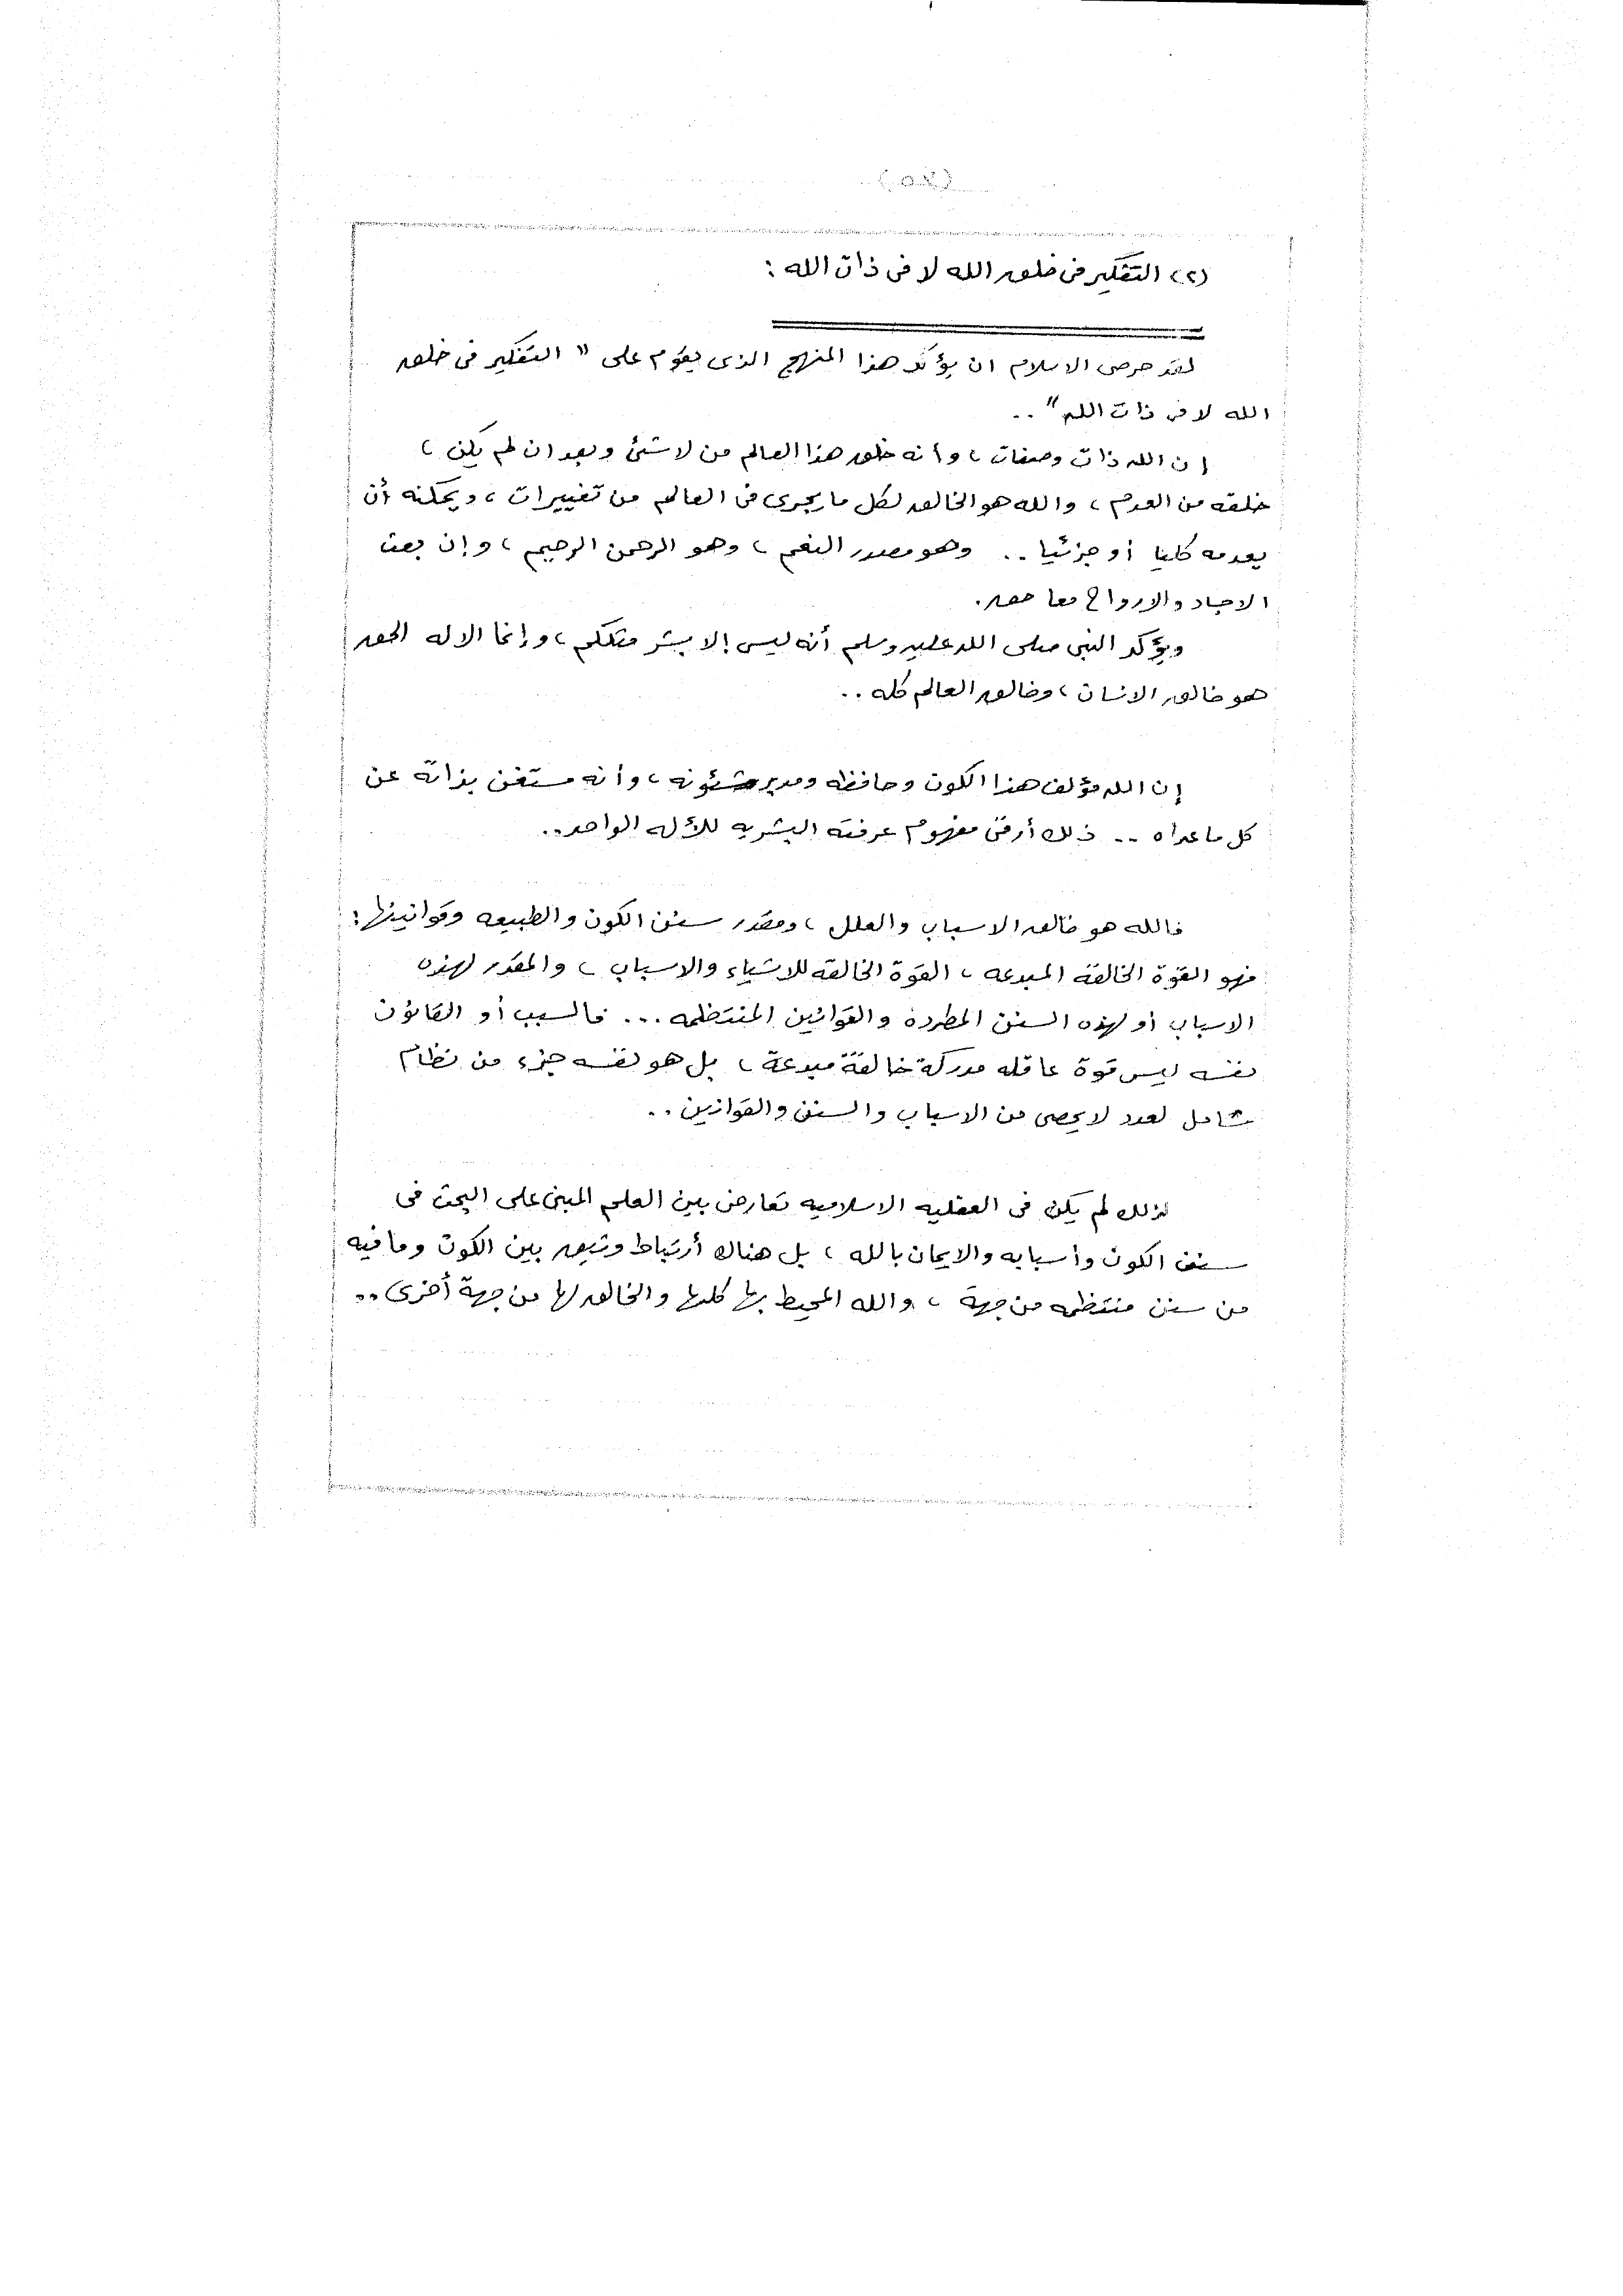 (٢) التفكير فى خلق الله لا فى ذات الله :
لقد حرص الاسلام ان يؤكد هذا المنهج الذى يقوم على " التفكير فى خلق
الله لا فى ذات الله" ..
ان الله ذات وصفات ، وأنه خلق هذا العالم من لا شئ وبعد ان لم يكن ،
خلقه من العدم ، والله هو الخالق لكل ما يجرى فى العالم من تغييرات ، ويمكنه أن
يعدمه كليا أو جزئيا .. وهو مصدر النعم ، وهو الرحمن الرحيم ، وإن بعث
الاجساد والارواح معا حق .
ويؤكد النبى صلى الله عليه وسلم أنه ليس إلا بشر مثلكم ، وإنما الاله الحق
هو خالق الانسان ، وخالق العالم كله ..
إن الله مؤلف هذا الكون وحافظه ومدبر شئونه ، وأنه مستغن بذاته عن
كل ما عداه .. ذلك أرقى مفهوم عرفته البشريه للأله الواحد ..
فالله هو خالق الاسباب والعلل ، ومقدر سنن الكون والطبيعه وقوانينها :
فهو القوة الخالقة المبدعه ، القوة الخالقه للاشياء والاسباب ، والمقدر لهذه
الاسباب أو لهذه السنن المطردة والقوانين المنتظمه ... فالسبب أو القانون
نفسه ليس قوة عاقله مدركة خالقة مبدعة ، بل هو نفسه جزء من نظام
شامل لعدد لا يحصى من الاسباب والسنن والقوانين ..
لذلك لم يكن فى العقليه الاسلاميه تعارض بين العلم المبنى على البحث فى
سنن الكون وأسبابه والايمان بالله ، بل هناك أرتباط وثيق بين الكون وما فيه
من سنن منتظمه من جهة ، والله المحيط بها كلها والخالق لها من جهة أخرى ..